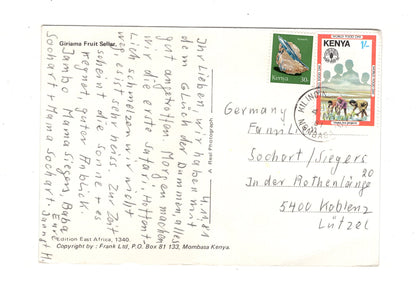 Giriama Fruit Seller.
4.11.81
Ihr Lieben, wir haben mit
dem Glück der Dummen alles
gut angetroffen. Morgen machen
wir die erste Safari. Hoffentlich
schmelzen wir nicht
weg, es ist sehr heiss. Zur Zeit
scheint die Sonne + es
regnet guter Anblick.
Jambo Mama Siegers, Baba
Sochart + Mama Sochart. Eure
Edition East Africa, 1340.
Copyright by: Frank Ltd, P.O. Box 81 133, Mombasa Kenya.
A Real Photograph
Kenya 30c
WORLD FOOD DAY
KENYA
1/-
KILINDINI
MOMBASA
Germany
Familie
Sochart/Siegers
In der Rothenlänge
20
5400 Koblenz
Lützel